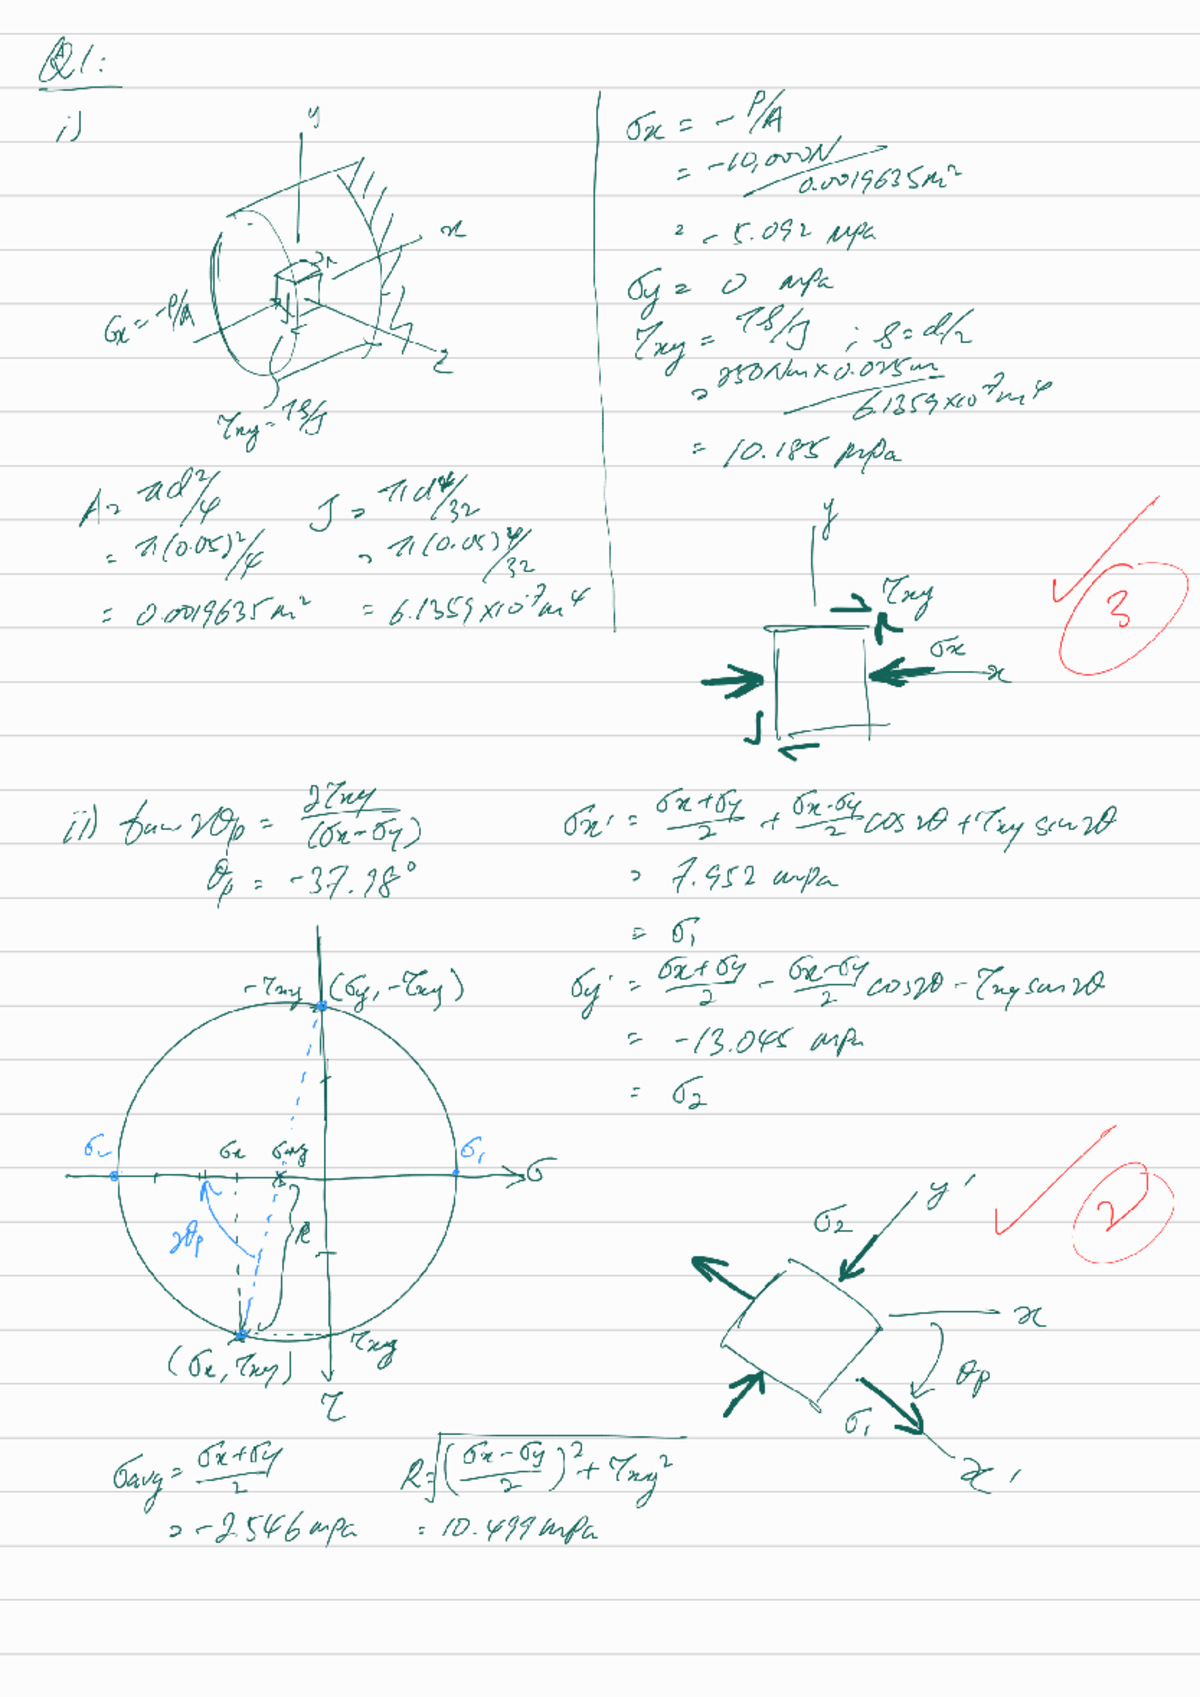 Q1:
i)
y
x
z
σx = -P/A
τxy = Tρ/J
A = πd²/4
= π(0.05)²/4
= 0.0019635 m²
J = πd⁴/32
= π(0.05)⁴/32
= 6.1359×10⁻⁷ m⁴
σx = -P/A
= -10,000N/0.0019635m²
= -5.092 MPa
σy = 0 MPa
τxy = Tρ/J ; ρ = d/2
= 250Nm × 0.025m/6.1359×10⁻⁷m⁴
= 10.185 MPa
y
τxy
σx
x
3
ii) tan 2θp = 2τxy/(σx-σy)
θp = -37.98°
σx' = (σx+σy)/2 + (σx-σy)/2 cos 2θ + τxy sin 2θ
= 7.952 MPa
= σ1
σy' = (σx+σy)/2 - (σx-σy)/2 cos 2θ - τxy sin 2θ
= -13.045 MPa
= σ2
-τxy (σy, -τxy)
σ2
σx
σavg
σ1
σ
2θp
R
τxy
(σx, τxy)
τ
σavg = (σx+σy)/2
= -2.546 MPa
R = √((σx-σy)/2)² + τxy²
= 10.499 MPa
y'
σ2
x
θp
σ1
x'
2